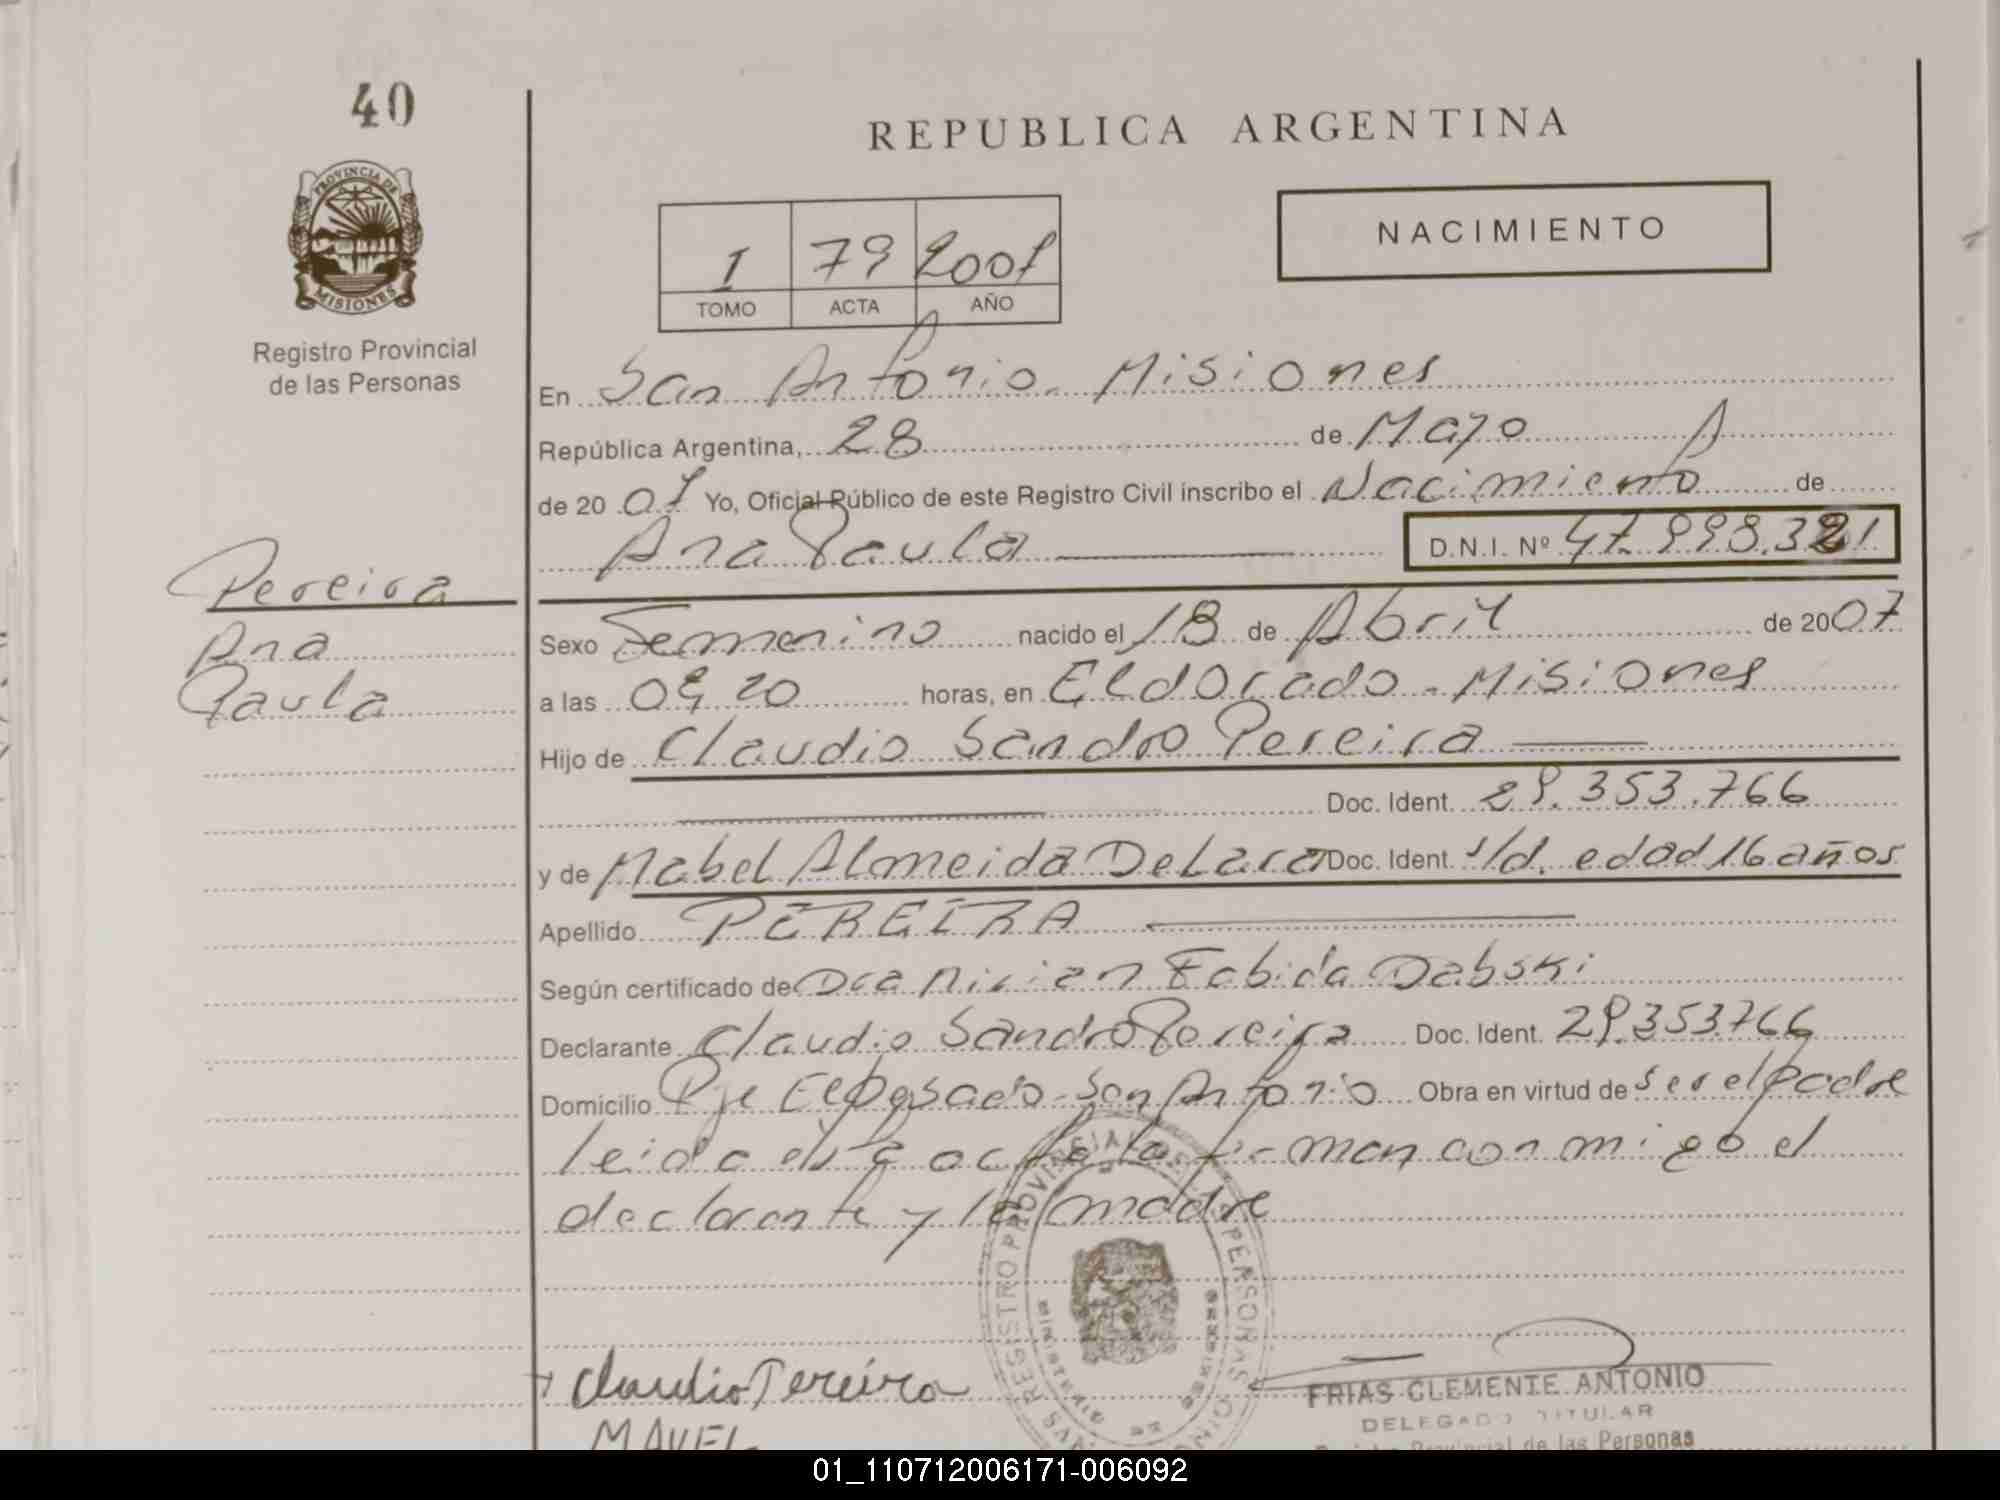 40
REPUBLICA ARGENTINA
PROVINCIA DE
MISIONES
Registro Provincial
de las Personas
NACIMIENTO
I 79 2007
TOMO ACTA AÑO
En San Antonio - Misiones
República Argentina, 28 de Mayo
de 2007 Yo, Oficial Público de este Registro Civil inscribo el Nacimiento de
Ana Paula D.N.I. Nº 47.998.321
Pereira
Ana
Paula
Sexo Femenino nacido el 18 de Abril de 2007
a las 09,20 horas, en Eldorado - Misiones
Hijo de Claudio Sandro Pereira
Doc. Ident. 29.353.766
y de Mabel Almeida De Lara Doc. Ident. s/d. edad 16 años
Apellido PEREIRA
Según certificado de Dra Dabski
Declarante Claudio Sandro Pereira Doc. Ident. 29.353.766
Domicilio Pje El Posado - San Antonio Obra en virtud de ser el padre
leida esta acta la firman conmigo el
declarante y la madre
REGISTRO PROVINCIAL DE LAS PERSONAS
Claudio Pereira
FRIAS CLEMENTE ANTONIO
DELEGADO TITULAR
Registro Provincial de las Personas
01_110712006171-006092